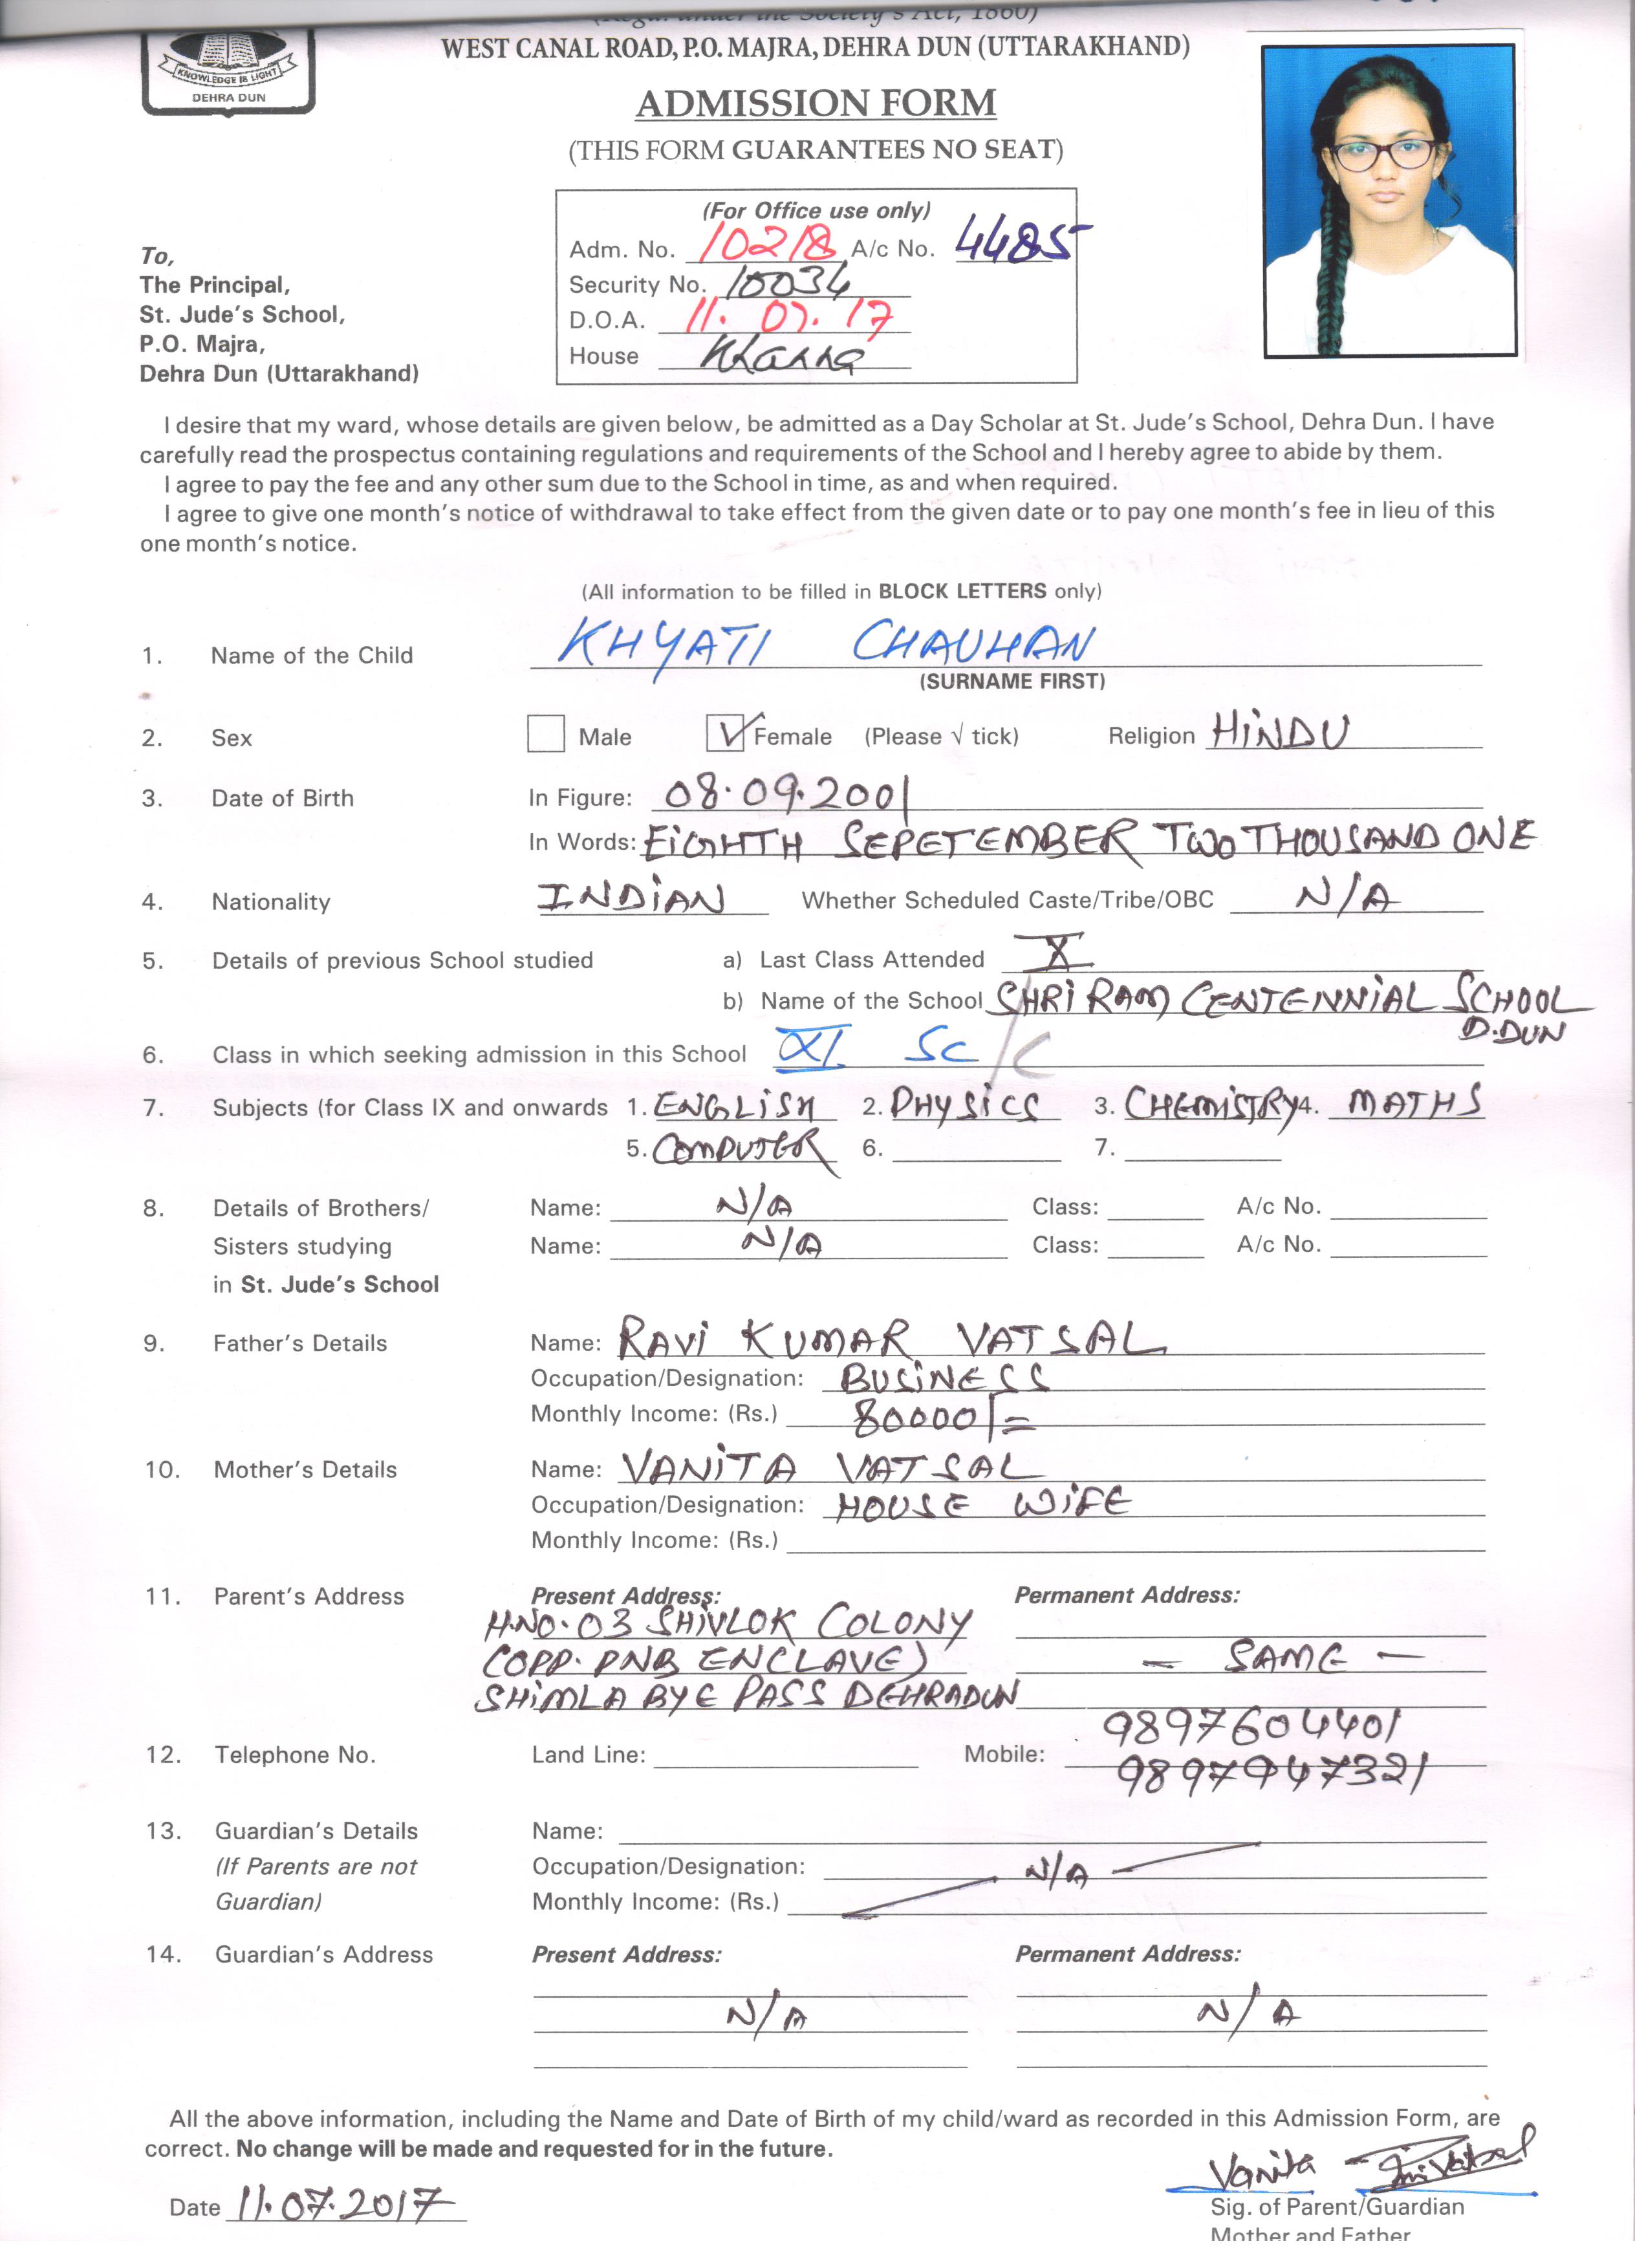 (Regd. under the Society's Act, 1860)
WEST CANAL ROAD, P.O. MAJRA, DEHRA DUN (UTTARAKHAND)
KNOWLEDGE IS LIGHT
DEHRA DUN
ADMISSION FORM
(THIS FORM GUARANTEES NO SEAT)
(For Office use only)
Adm. No. 10218 A/c No. 4485
Security No. 10034
D.O.A. 11.07.17
House Khanna
To,
The Principal,
St. Jude's School,
P.O. Majra,
Dehra Dun (Uttarakhand)
I desire that my ward, whose details are given below, be admitted as a Day Scholar at St. Jude's School, Dehra Dun. I have
carefully read the prospectus containing regulations and requirements of the School and I hereby agree to abide by them.
I agree to pay the fee and any other sum due to the School in time, as and when required.
I agree to give one month's notice of withdrawal to take effect from the given date or to pay one month's fee in lieu of this
one month's notice.
(All information to be filled in BLOCK LETTERS only)
1. Name of the Child KHYATI CHAUHAN
(SURNAME FIRST)
2. Sex Male Female (Please √ tick) Religion HINDU
3. Date of Birth In Figure: 08.09.2001
In Words: EIGHTH SEPETEMBER TWO THOUSAND ONE
4. Nationality INDIAN Whether Scheduled Caste/Tribe/OBC N/A
5. Details of previous School studied a) Last Class Attended X
b) Name of the School SHRI RAM CENTENNIAL SCHOOL
D.DUN
6. Class in which seeking admission in this School XI SC/C
7. Subjects (for Class IX and onwards 1. ENGLISH 2. PHYSICS 3. CHEMISTRY 4. MATHS
5. COMPUTER 6. 7.
8. Details of Brothers/ Name: N/A Class: A/c No.
Sisters studying Name: N/A Class: A/c No.
in St. Jude's School
9. Father's Details Name: RAVI KUMAR VATSAL
Occupation/Designation: BUSINESS
Monthly Income: (Rs.) 80000/=
10. Mother's Details Name: VANITA VATSAL
Occupation/Designation: HOUSE WIFE
Monthly Income: (Rs.)
11. Parent's Address Present Address: Permanent Address:
H.NO.03 SHIVLOK COLONY
(OPP. PNB ENCLAVE) - SAME -
SHIMLA BYE PASS DEHRADUN
9897604401
12. Telephone No. Land Line: Mobile:
9897947321
13. Guardian's Details Name:
(If Parents are not Occupation/Designation: N/A
Guardian) Monthly Income: (Rs.)
14. Guardian's Address Present Address: Permanent Address:
N/A N/A
All the above information, including the Name and Date of Birth of my child/ward as recorded in this Admission Form, are
correct. No change will be made and requested for in the future.
Vanita
Date 11.07.2017 Sig. of Parent/Guardian
Mother and Father